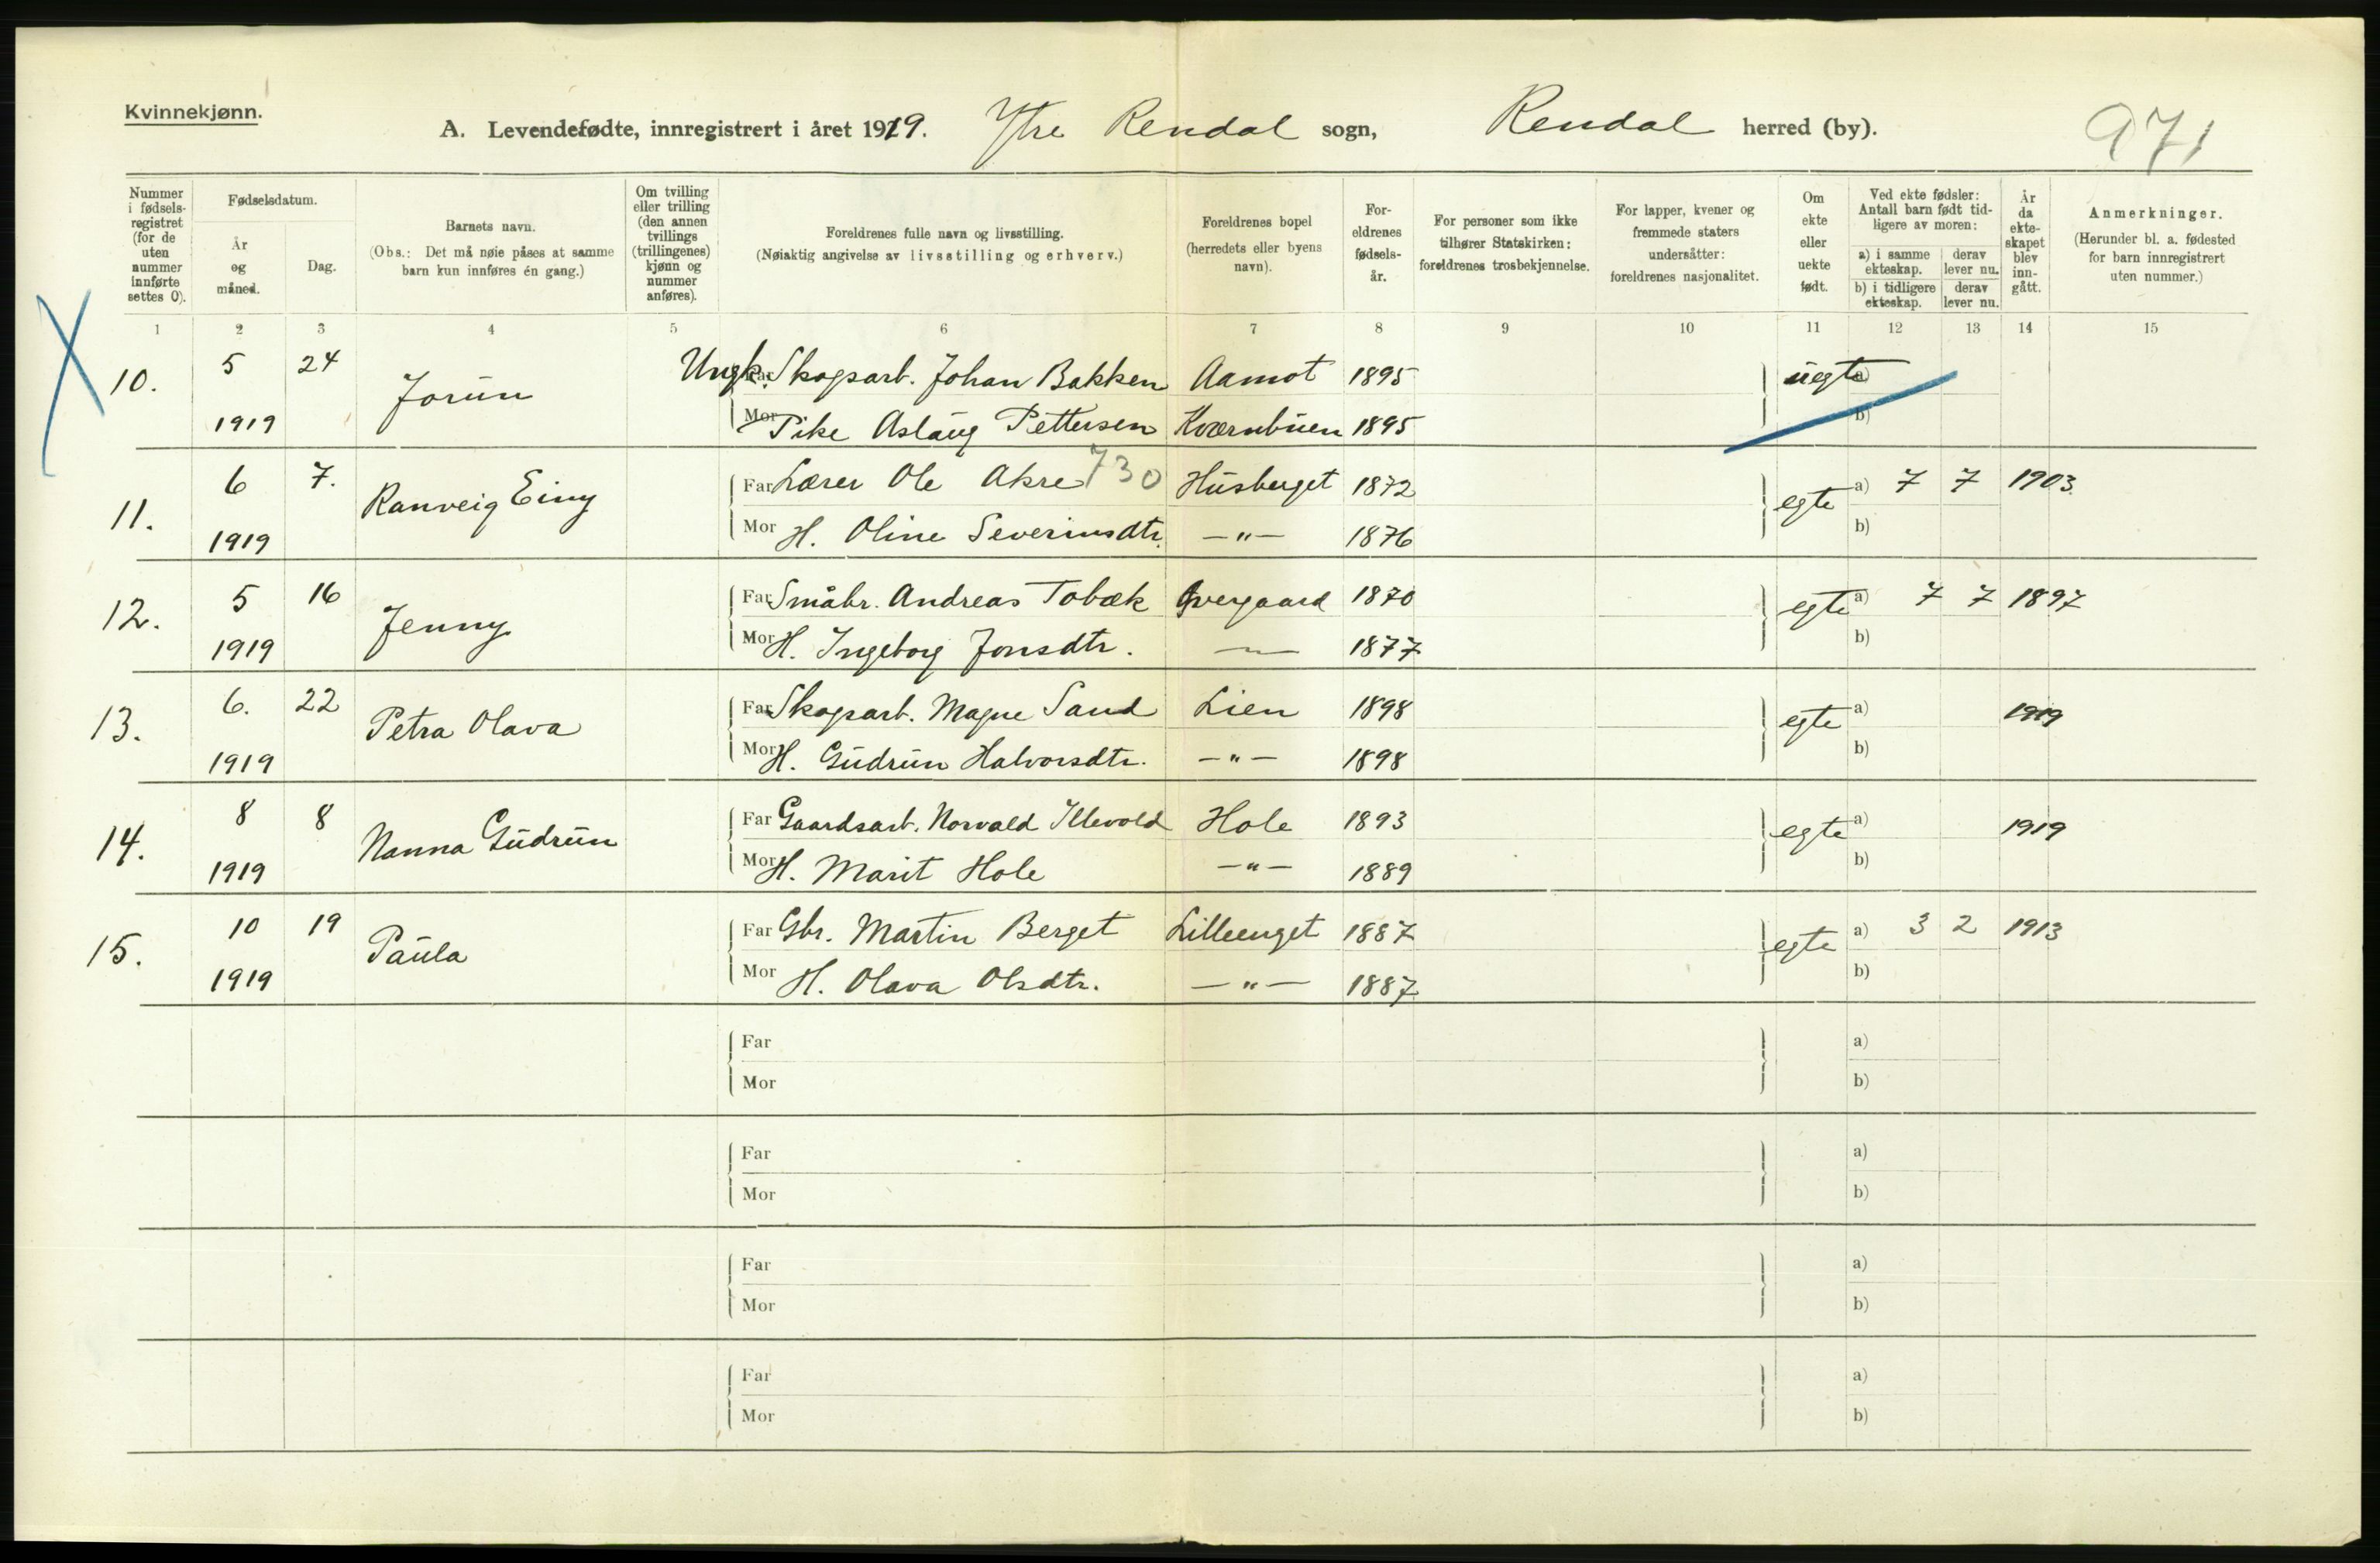 Kvinnekjønn.
A. Levendefødte, innregistrert i året 1919. Ytre Rendal sogn, Rendal herred (by). 971
Nummer i fødsels-registret (for de uten nummer innførte settes 0).
Fødselsdatum.
År og måned.
Dag.
Barnets navn.
(Obs.: Det må nøie påses at samme barn kun innføres én gang.)
Om tvilling eller trilling (den annen tvillings (trillingenes) kjønn og nummer anføres).
Foreldrenes fulle navn og livsstilling.
(Nøiaktig angivelse av livsstilling og erhverv.)
Foreldrenes bopel (herredets eller byens navn).
For-eldrenes fødsels-år.
For personer som ikke tilhører Statskirken: foreldrenes trosbekjennelse.
For lapper, kvener og fremmede staters undersåtter: foreldrenes nasjonalitet.
Om ekte eller uekte født.
Ved ekte fødsler: Antall barn født tid-ligere av moren:
a) i samme ekteskap. derav lever nu.
b) i tidligere ekteskap. derav lever nu.
År da ekte-skapet blev inn-gått.
Anmerkninger.
(Herunder bl. a. fødested for barn innregistrert uten nummer.)
1 2 3 4 5 6 7 8 9 10 11 12 13 14 15
10. 5 24 Jorün Far Ungk. Skogsarb. Johan Bakken Aamot 1895 üegte a)
1919 Mor Pike Aslaüg Pettersen Kværnbüen 1895 b)
11. 6 7. Ranveig Einy Far Lærer Ole Akre 730 Hüsberget 1872 egte a) 7 7 1903
1919 Mor H. Oline Severinsdtr. —"— 1876 b)
12. 5 16 Jenny Far Småbr. Andreas Tobæk Øvergaard 1870 egte a) 7 7 1897
1919 Mor H. Ingeborg Jonsdtr. —"— 1877 b)
13. 6. 22 Petra Olava Far Skogsarb. Magne Sand Lien 1898 egte a) 1919
1919 Mor H. Güdrün Halvorsdtr. —"— 1898 b)
14. 8 8 Nanna Güdrün Far Gaardsarb. Norvald Illevold Hole 1893 egte a) 1919
1919 Mor H. Marit Hole —"— 1889 b)
15. 10 19 Paüla Far Gbr. Martin Berget Lilleenget 1887 egte a) 3 2 1913
1919 Mor H. Olava Olsdtr. —"— 1887 b)
Far a)
Mor b)
Far a)
Mor b)
Far a)
Mor b)
Far a)
Mor b)